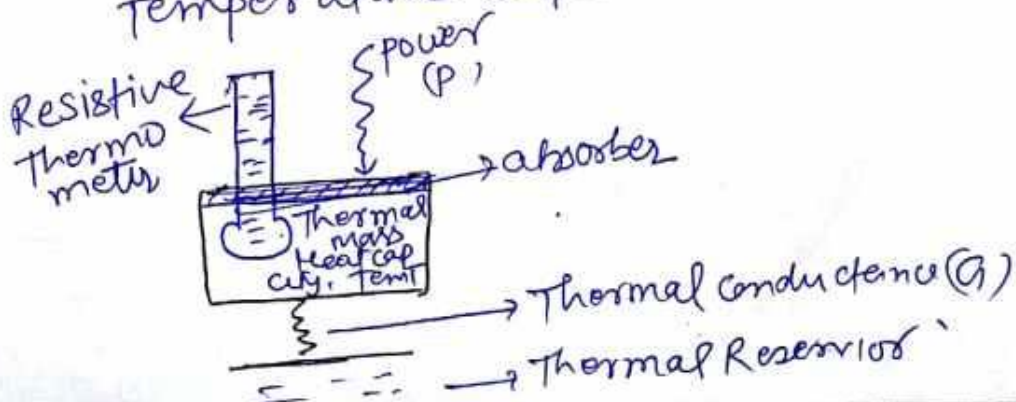 power
(P)
Resistive
Thermo
meter
absorber
Thermal
mass
Heat cap
city, Temt
Thermal conductance (G)
Thermal Reservior